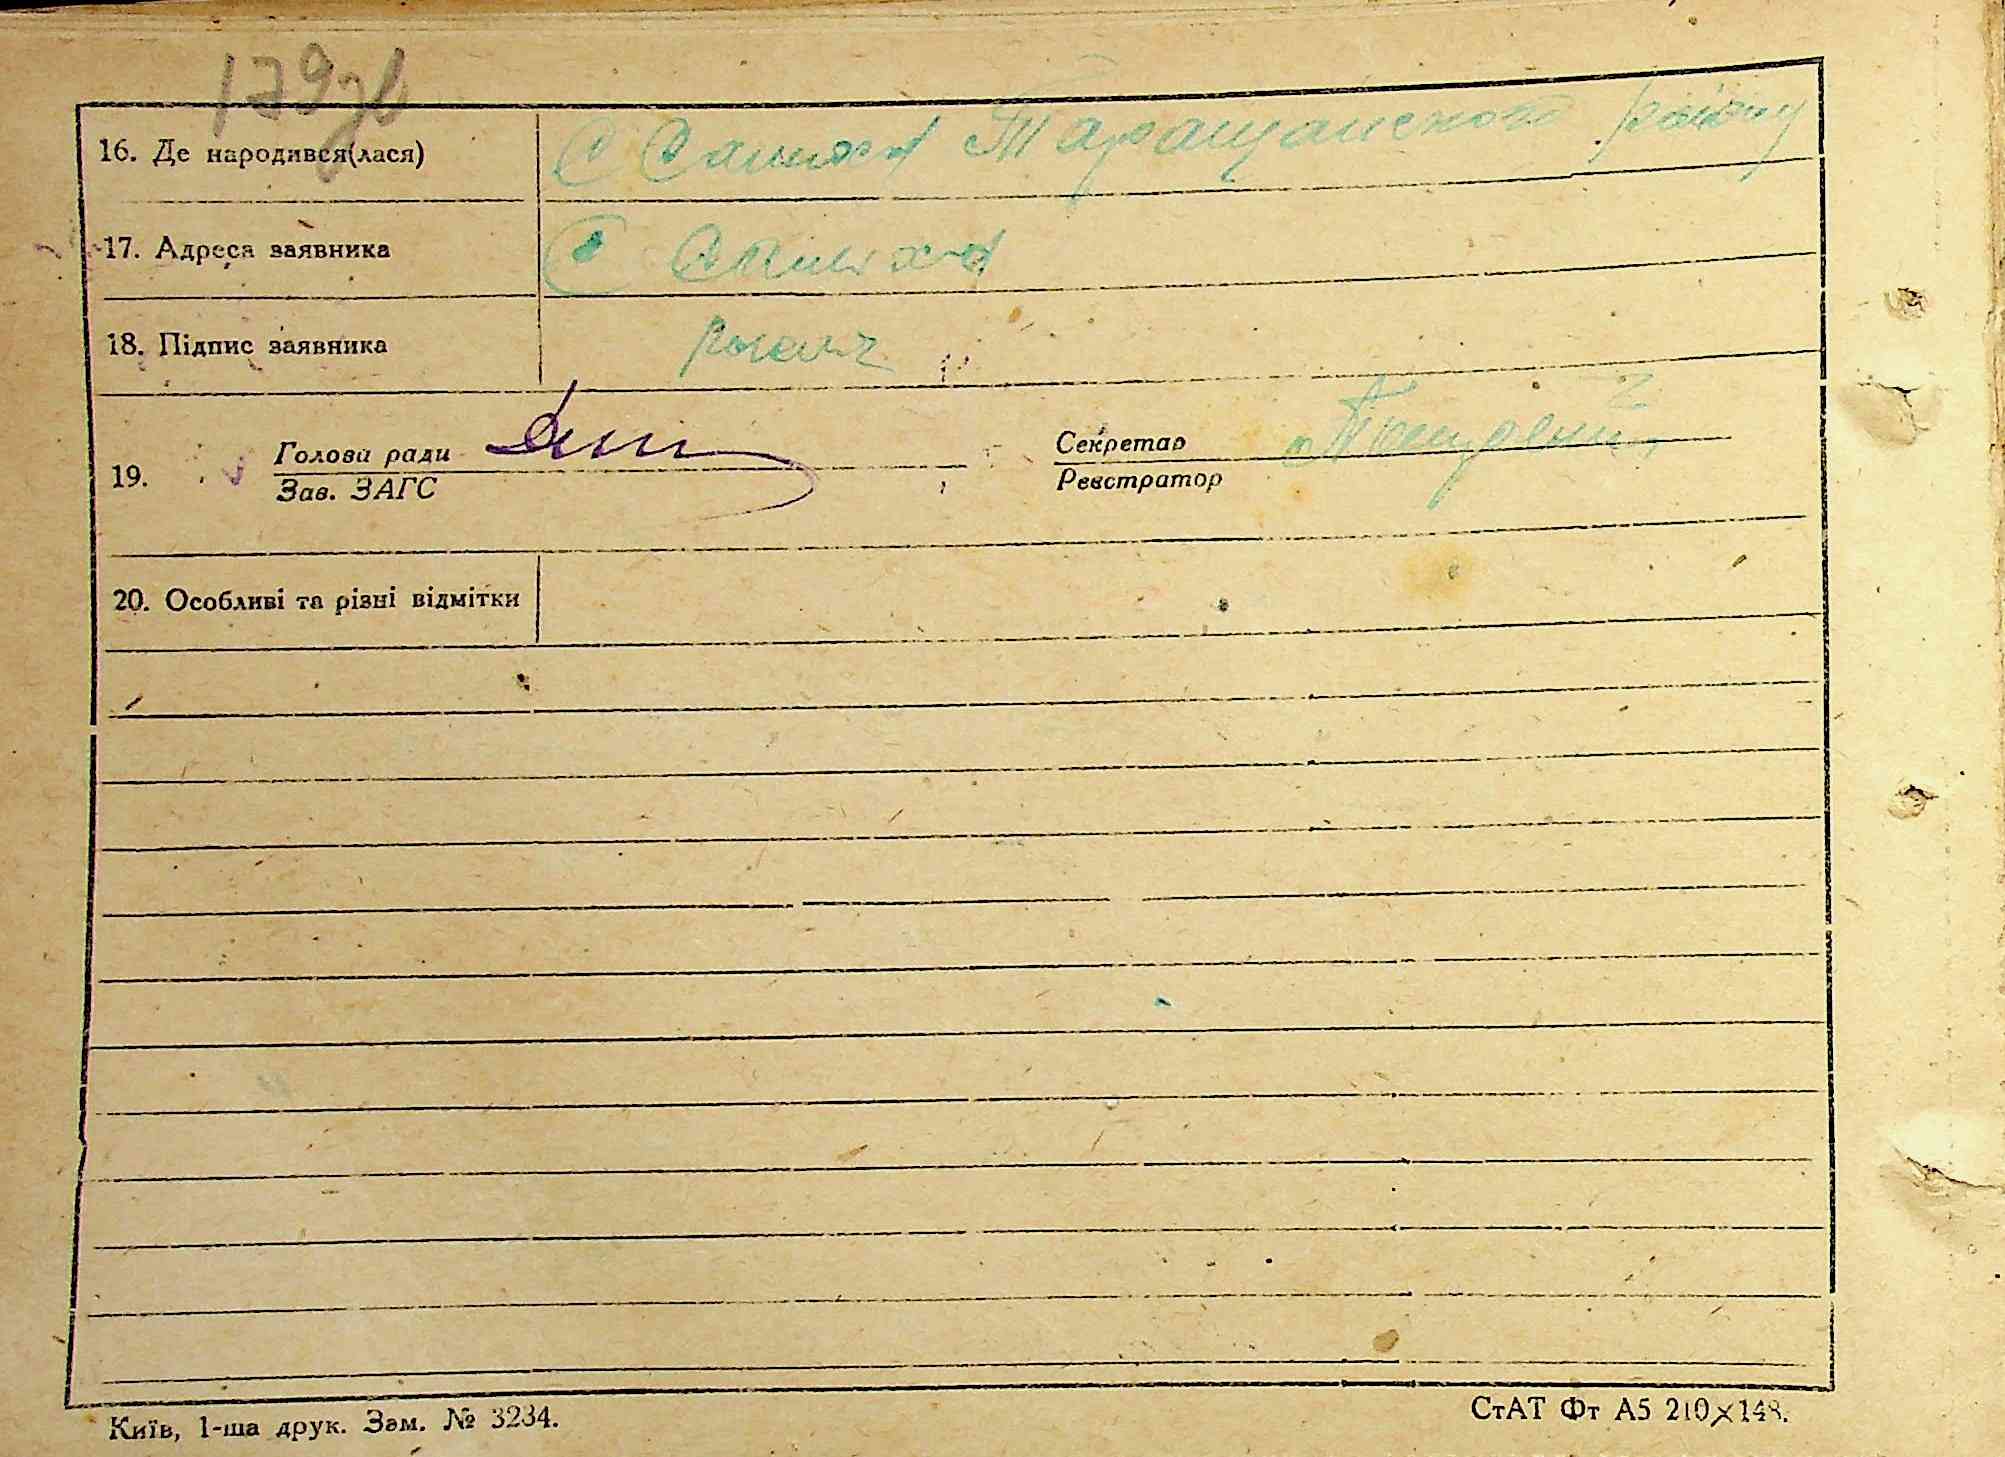 179зв
16. Де народився(лася) С Салиха Таращанського району
17. Адреса заявника С Салиха
18. Підпис заявника
19. Голова ради Секретар
Зав. ЗАГС Реєстратор
20. Особливі та різні відмітки
Київ, 1-ша друк. Зам. № 3234.
СтАТ Фт А5 210×148.